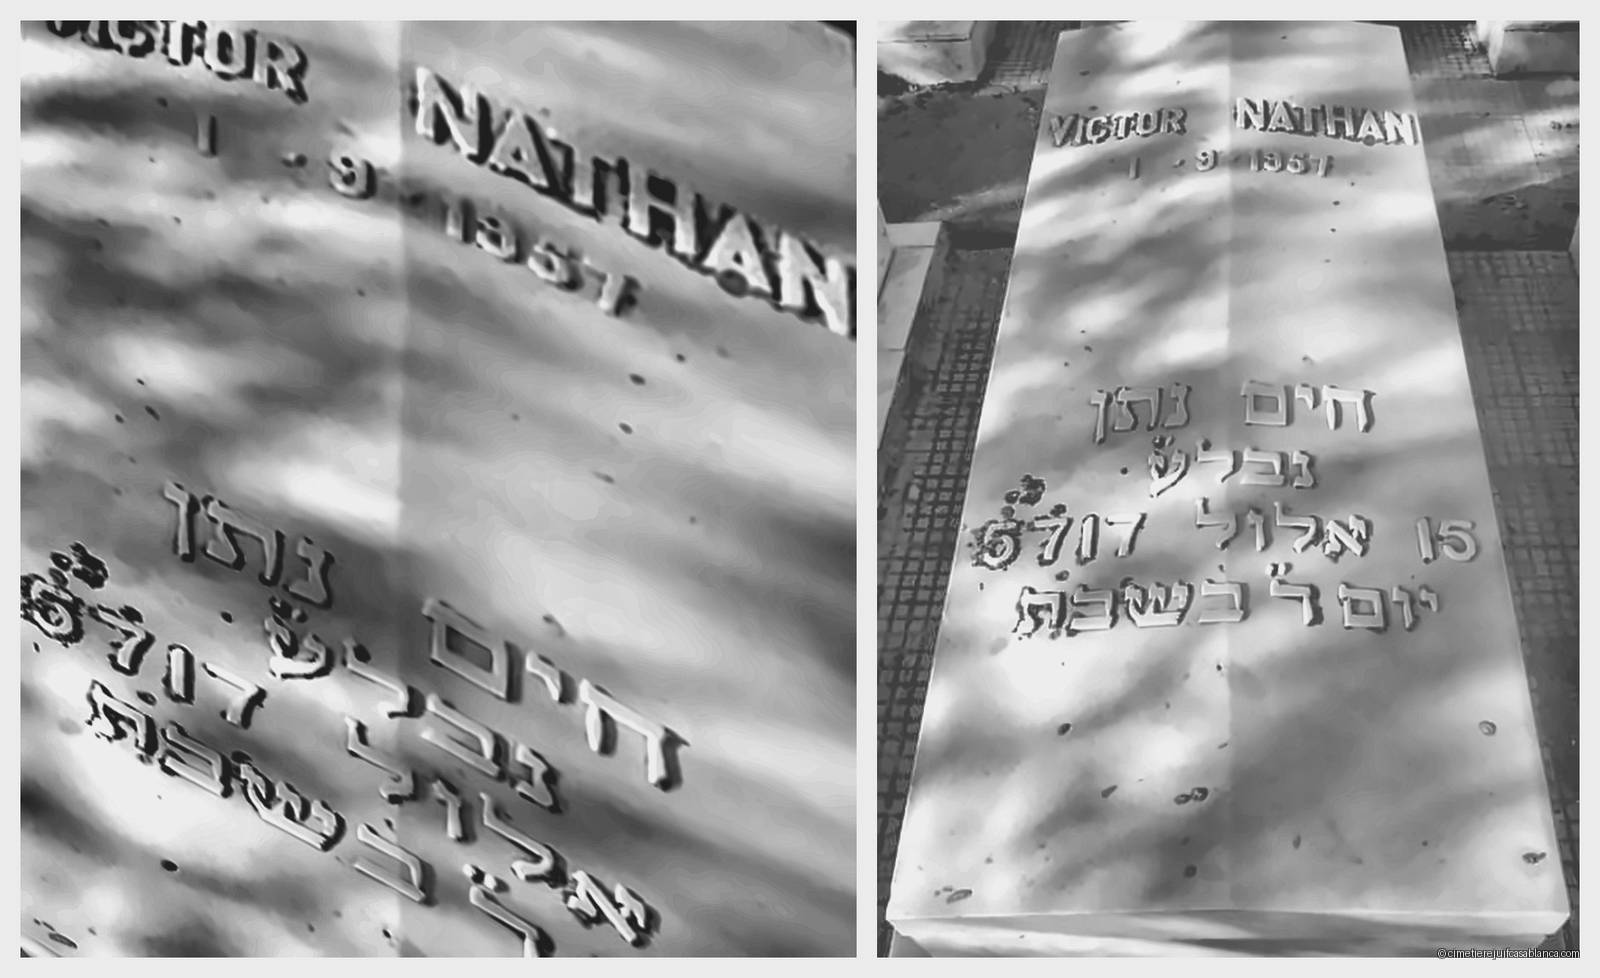 VICTOR NATHAN
1 - 9 - 1957
חיים נתן
נבל״ע
אלול 5717
ד״ בשבת
VICTOR NATHAN
1 - 9 - 1957
חיים נתן
נבל״ע
15 אלול 5717
יום ד״ בשבת
©cimetierejuifcasablanca.com